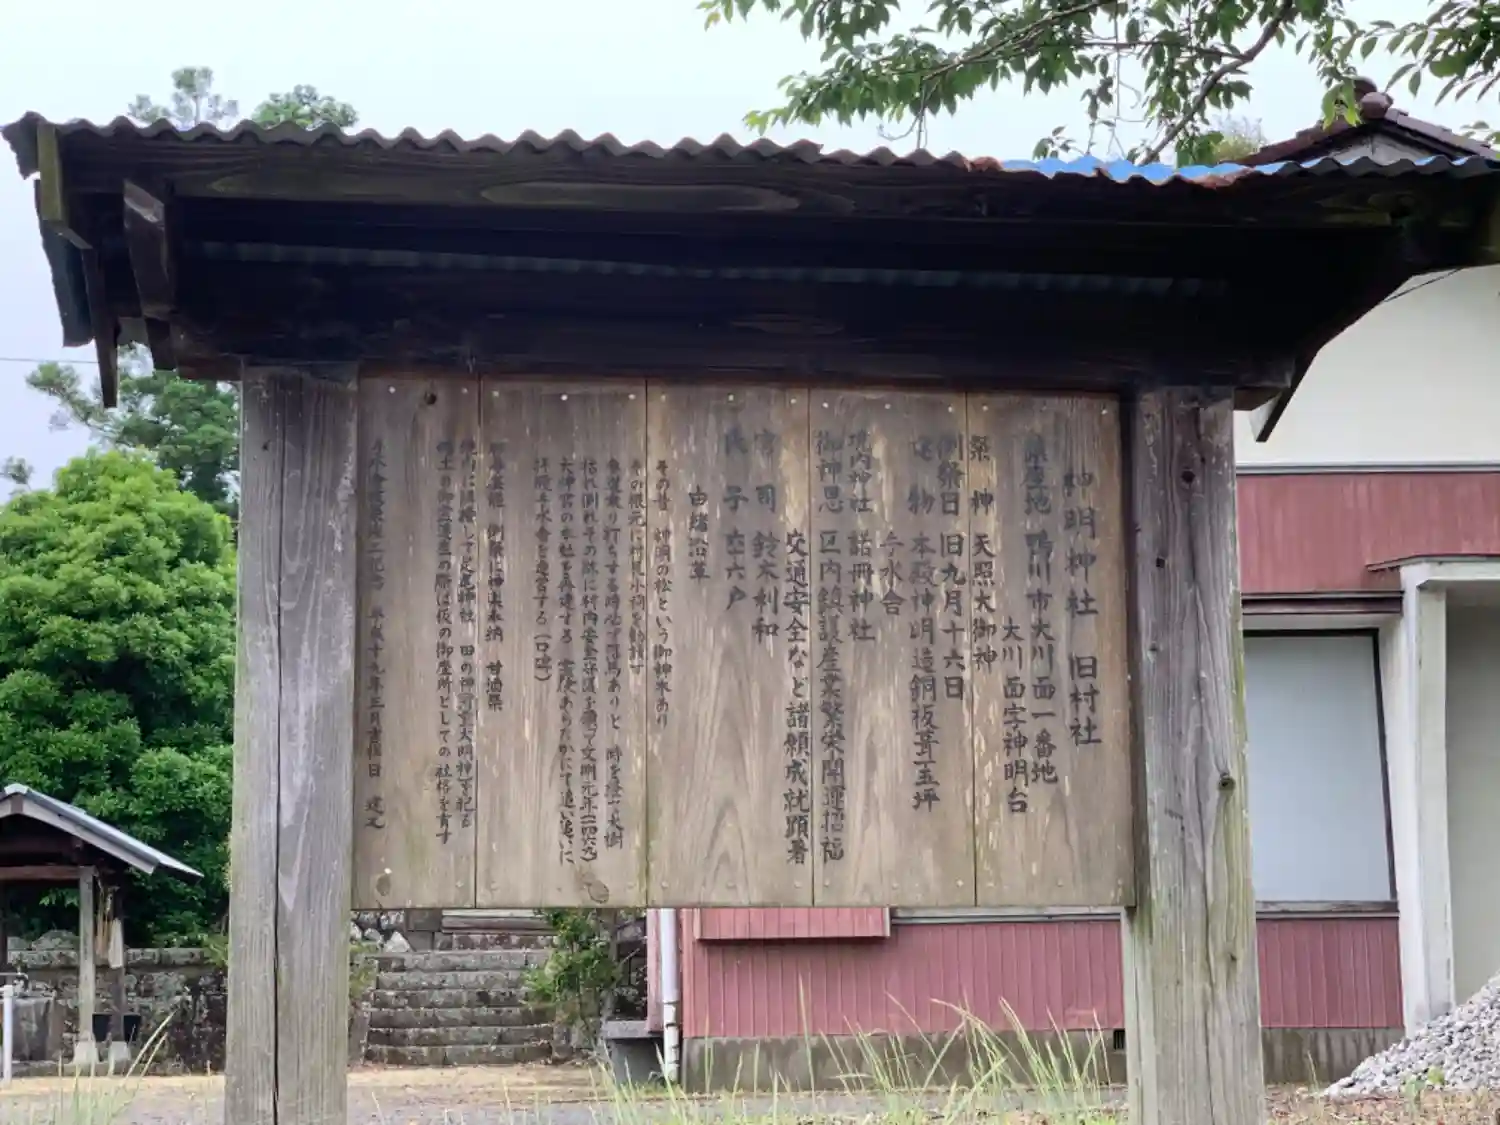 神明神社 旧村社
鎮座地 鴨川市大川面一番地
大川面字神明台
祭神 天照大御神
例祭日 旧九月十六日
建物 本殿神明造銅板葺十五坪
手水舎
境内神社 諾冊神社
御神恩 区内鎮護産業繁栄開運招福
交通安全など諸願成就顕著
宮司 鈴木利和
氏子 六戸
由緒沿革
その昔 神洞の松という御神木あり
その根元に 小祠を勧請す
乗り打ちする時必ず落馬ありと 時を経て大樹
枯れ倒れその跡に村内安全 を願って文明元年(一四六九)
大神宮の本社を再建する 霊験あらたかにて追い追いに
拝殿手水舎を造営する(口碑)
例祭に神楽奉納 甘酒祭
境内に隣接して足尾神社 田の神 大明神を祀る
の際は仮の御座所としての社格を有す
平成十九年三月吉祥日 建之